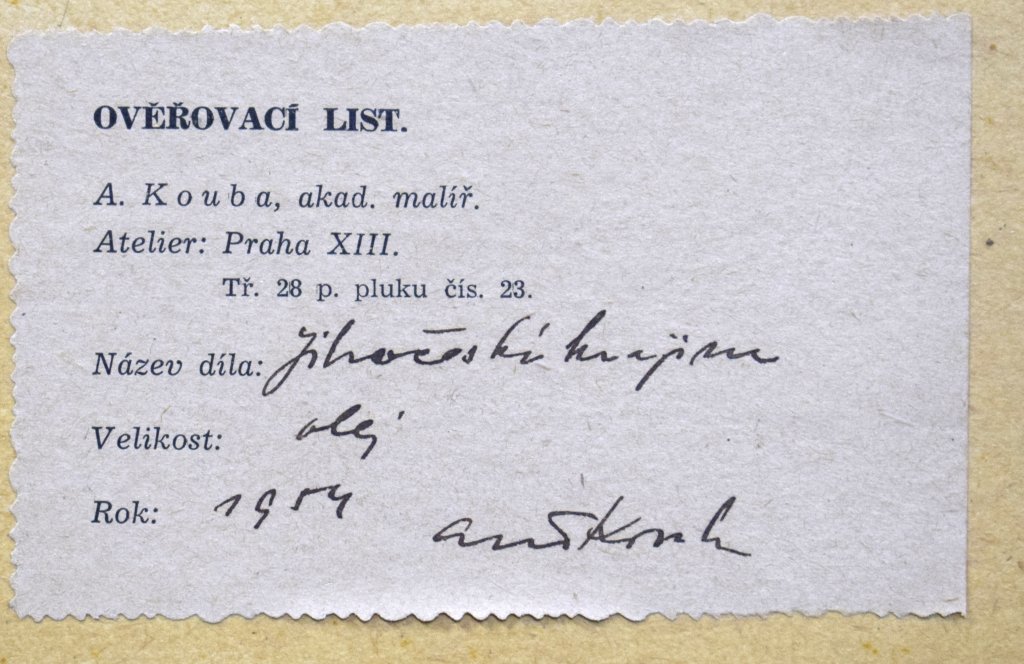 OVĚŘOVACÍ LIST.
A. Kouba, akad. malíř.
Atelier: Praha XIII.
Tř. 28 p. pluku čís. 23.
Název díla: Jihočeská krajina
Velikost: olej
Rok: 1954